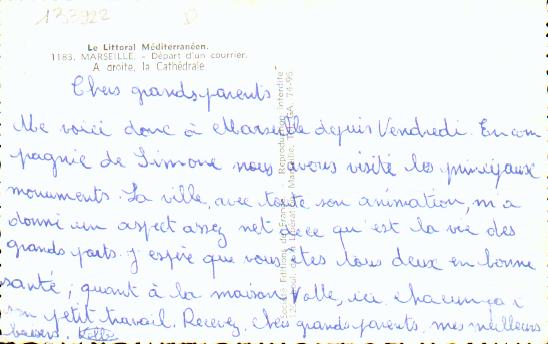 133922
Le Littoral Méditerranéen.
1183. MARSEILLE. - Départ d'un courrier.
A droite, la Cathédrale.
Chers grands-parents
Me voici donc à Marseille depuis Vendredi. En com
pagnie de Simone nous avons visité les principaux
monuments. La ville, avec toute son animation, m'a
donné un aspect assez net de ce qu'est la vie des
grands ports. J'espère que vous êtes tous deux en bonne
santé ; quant à la maison Valle, ici chacun ça a
son petit travail. Recevez, chers grands-parents, mes meilleurs
baisers.